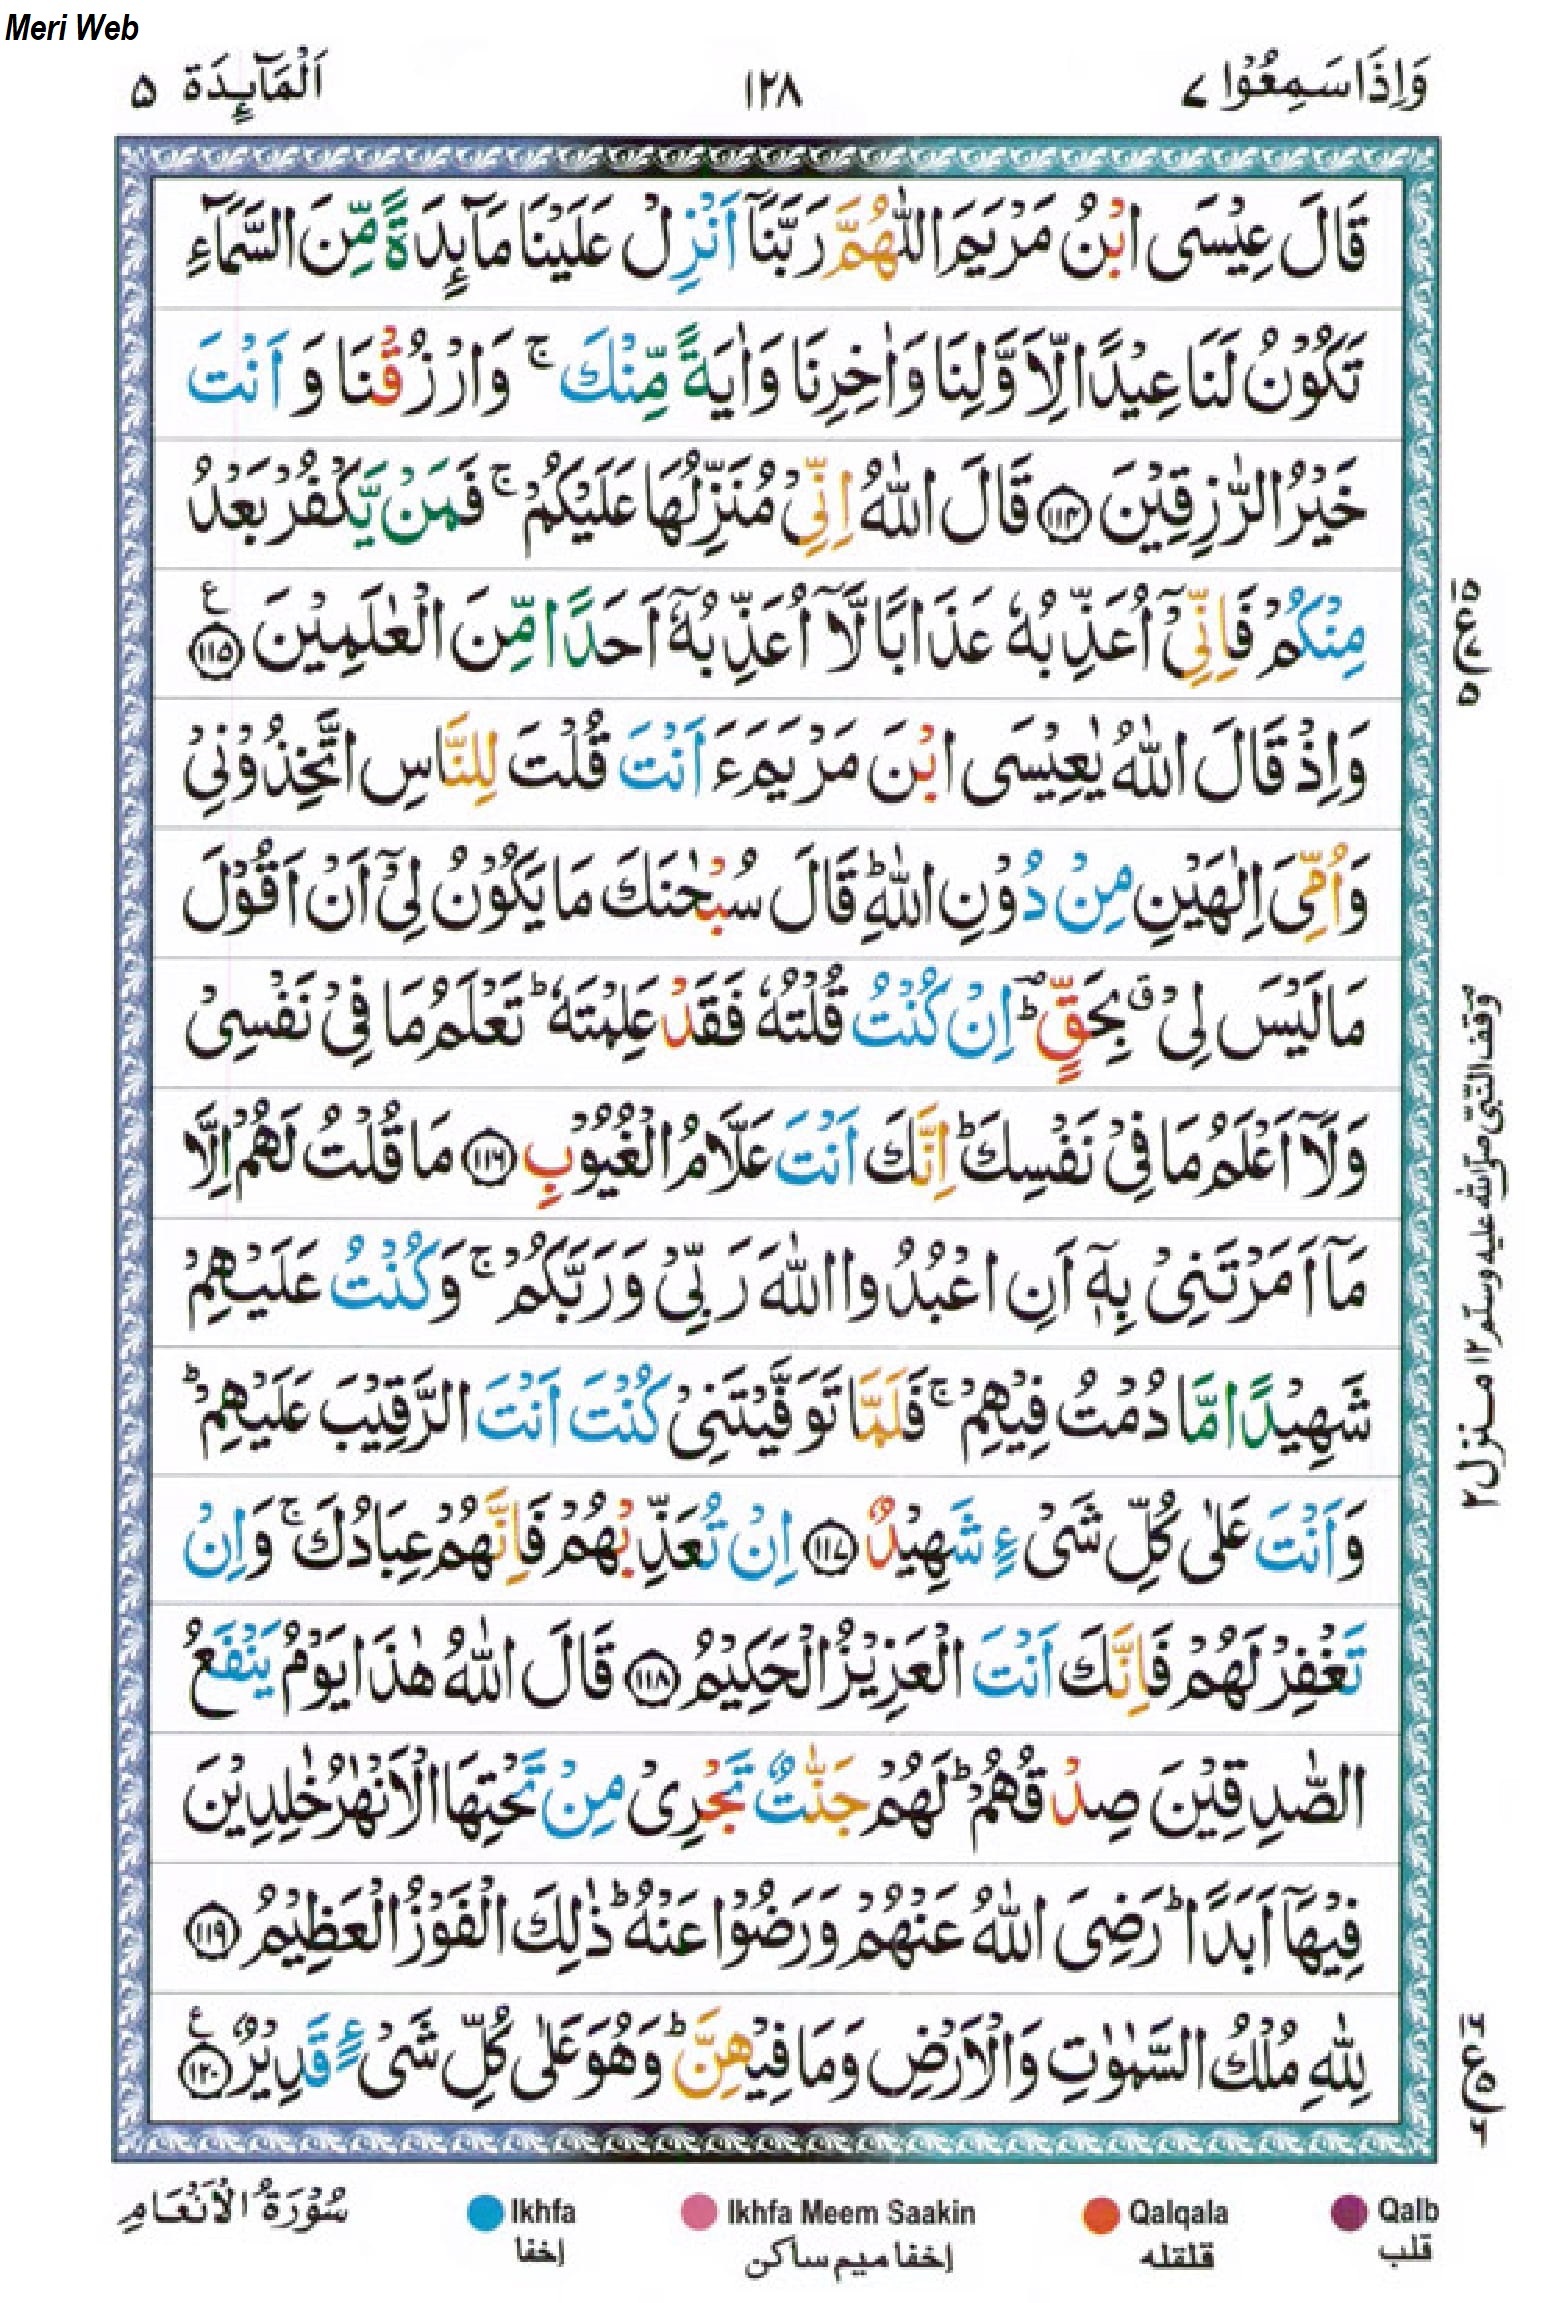 Meri Web
وَاِذَا سَمِعُوْا ٧
١٢٨
اَلْمَآىِٕدَة ۵
قَالَ عِيْسَى ابْنُ مَرْيَمَ اللّٰهُمَّ رَبَّنَاۤ اَنْزِلْ عَلَيْنَا مَآىِٕدَةً مِّنَ السَّمَآءِ
تَكُوْنُ لَنَا عِيْدًا لِّاَوَّلِنَا وَاٰخِرِنَا وَاٰيَةً مِّنْكَ ۚ وَارْزُقْنَا وَ اَنْتَ
خَيْرُ الرّٰزِقِيْنَ ﴿١١٤﴾ قَالَ اللّٰهُ اِنِّيْ مُنَزِّلُهَا عَلَيْكُمْ ۚ فَمَنْ يَّكْفُرْ بَعْدُ
مِنْكُمْ فَاِنِّيْۤ اُعَذِّبُهٗ عَذَابًا لَّاۤ اُعَذِّبُهٗۤ اَحَدًا مِّنَ الْعٰلَمِيْنَ ﴿١١٥﴾ ع
وَاِذْ قَالَ اللّٰهُ يٰعِيْسَى ابْنَ مَرْيَمَ ءَ اَنْتَ قُلْتَ لِلنَّاسِ اتَّخِذُوْنِيْ
وَاُمِّيَ اِلٰهَيْنِ مِنْ دُوْنِ اللّٰهِ ؕ قَالَ سُبْحٰنَكَ مَا يَكُوْنُ لِيْۤ اَنْ اَقُوْلَ
مَا لَيْسَ لِيْ ۗ بِحَقٍّ ؕ اِنْ كُنْتُ قُلْتُهٗ فَقَدْ عَلِمْتَهٗ ؕ تَعْلَمُ مَا فِيْ نَفْسِيْ
وَلَاۤ اَعْلَمُ مَا فِيْ نَفْسِكَ ؕ اِنَّكَ اَنْتَ عَلَّامُ الْغُيُوْبِ ﴿١١٦﴾ مَا قُلْتُ لَهُمْ اِلَّا
مَاۤ اَمَرْتَنِيْ بِهٖۤ اَنِ اعْبُدُوا اللّٰهَ رَبِّيْ وَرَبَّكُمْ ۚ وَكُنْتُ عَلَيْهِمْ
شَهِيْدًا مَّا دُمْتُ فِيْهِمْ ۚ فَلَمَّا تَوَفَّيْتَنِيْ كُنْتَ اَنْتَ الرَّقِيْبَ عَلَيْهِمْ ؕ
وَاَنْتَ عَلٰى كُلِّ شَيْءٍ شَهِيْدٌ ﴿١١٧﴾ اِنْ تُعَذِّبْهُمْ فَاِنَّهُمْ عِبَادُكَ ۚ وَاِنْ
تَغْفِرْ لَهُمْ فَاِنَّكَ اَنْتَ الْعَزِيْزُ الْحَكِيْمُ ﴿١١٨﴾ قَالَ اللّٰهُ هٰذَا يَوْمُ يَنْفَعُ
الصّٰدِقِيْنَ صِدْقُهُمْ ؕ لَهُمْ جَنّٰتٌ تَجْرِيْ مِنْ تَحْتِهَا الْاَنْهٰرُ خٰلِدِيْنَ
فِيْهَاۤ اَبَدًا ؕ رَضِيَ اللّٰهُ عَنْهُمْ وَرَضُوْا عَنْهُ ؕ ذٰلِكَ الْفَوْزُ الْعَظِيْمُ ﴿١١٩﴾
لِلّٰهِ مُلْكُ السَّمٰوٰتِ وَالْاَرْضِ وَمَا فِيْهِنَّ ؕ وَهُوَ عَلٰى كُلِّ شَيْءٍ قَدِيْرٌ ﴿١٢٠﴾ ع
وقف النّبيّ صلّى الله عليه وسلّم ١٢ منزل ٢
سُوْرَةُ الْاَنْعَامِ
Ikhfa
إخفا
Ikhfa Meem Saakin
إخفا ميم ساكن
Qalqala
قلقله
Qalb
قلب